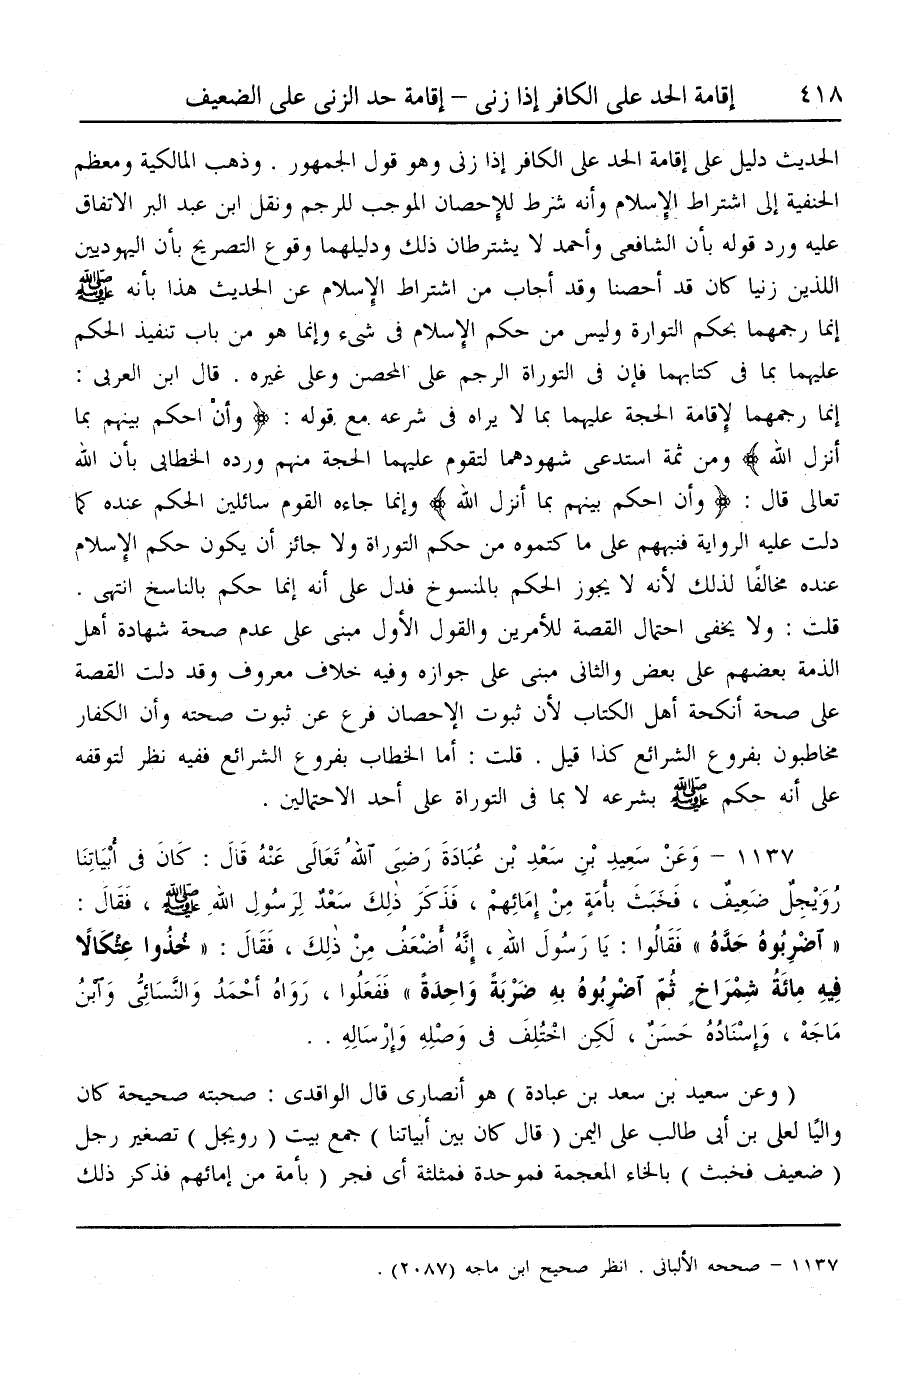 ٤١٨ إقامة الحد على الكافر إذا زنى – إقامة حد الزنى على الضعيف
الحديث دليل على إقامة الحد على الكافر إذا زنى وهو قول الجمهور . وذهب المالكية ومعظم
الحنفية إلى اشتراط الإسلام وأنه شرط للإحصان الموجب للرجم ونقل ابن عبد البر الاتفاق
عليه ورد قوله بأن الشافعى وأحمد لا يشترطان ذلك ودليلهما وقوع التصريح بأن اليهوديين
اللذين زنيا كان قد أحصنا وقد أجاب من اشتراط الإسلام عن الحديث هذا بأنه ﷺ
إنما رجمهما بحكم التوارة وليس من حكم الإسلام فى شىء وإنما هو من باب تنفيذ الحكم
عليهما بما فى كتابهما فإن فى التوراة الرجم على المحصن وعلى غيره . قال ابن العربى :
إنما رجمهما لإقامة الحجة عليهما بما لا يراه فى شرعه مع قوله : ﴿ وأنْ احكم بينهم بما
أنزل الله ﴾ ومن ثمة استدعى شهودهما لتقوم عليهما الحجة منهم ورده الخطابى بأن الله
تعالى قال : ﴿ وأن احكم بينهم بما أنزل الله ﴾ وإنما جاءه القوم سائلين الحكم عنده كما
دلت عليه الرواية فنبههم على ما كتموه من حكم التوراة ولا جائز أن يكون حكم الإسلام
عنده مخالفًا لذلك لأنه لا يجوز الحكم بالمنسوخ فدل على أنه إنما حكم بالناسخ انتهى .
قلت : ولا يخفى احتمال القصة للأمرين والقول الأول مبنى على عدم صحة شهادة أهل
الذمة بعضهم على بعض والثانى مبنى على جوازه وفيه خلاف معروف وقد دلت القصة
على صحة أنكحة أهل الكتاب لأن ثبوت الإحصان فرع عن ثبوت صحته وأن الكفار
مخاطبون بفروع الشرائع كذا قيل . قلت : أما الخطاب بفروع الشرائع ففيه نظر لتوقفه
على أنه حكم ﷺ بشرعه لا بما فى التوراة على أحد الاحتمالين .
١١٣٧ – وَعَنْ سَعِيدِ بْنِ سَعْدِ بْنِ عُبَادَةَ رَضِىَ ٱللهُ تَعَالَى عَنْهُ قَالَ : كَانَ فِى أَبْيَاتِنَا
رُوَيْجِلٌ ضَعِيفٌ ، فَخَبَثَ بِأَمَةٍ مِنْ إِمَائِهِمْ ، فَذَكَرَ ذٰلِكَ سَعْدٌ لِرَسُولِ اللهِ ﷺ ، فَقَالَ :
« ٱضْرِبُوهُ حَدَّهُ » فَقَالُوا : يَا رَسُولَ اللهِ ، إِنَّهُ أَضْعَفُ مِنْ ذٰلِكَ ، فَقَالَ : « خُذُوا عِثْكَالًا
فِيهِ مِائَةُ شِمْرَاخٍ ثُمّ ٱضْرِبُوهُ بِهِ ضَرْبَةً وَاحِدَةً » فَفَعَلُوا ، رَوَاهُ أَحْمَدُ وَالنَّسَائِىُّ وَٱبْنُ
مَاجَهْ ، وَإِسْنَادُهُ حَسَنٌ ، لَكِن اخْتُلِفَ فِى وَصْلِهِ وَإِرْسَالِهِ . .
( وعن سعيد بن سعد بن عبادة ) هو أنصارى قال الواقدى : صحبته صحيحة كان
واليًا لعلى بن أبى طالب على اليمن ( قال كان بين أبياتنا ) جمع بيت ( رويجل ) تصغير رجل
( ضعيف فخبث ) بالخاء المعجمة فموحدة فمثلثة أى فجر ( بأمة من إمائهم فذكر ذلك
١١٣٧ – صححه الألبانى . انظر صحيح ابن ماجه (٢٠٨٧) .